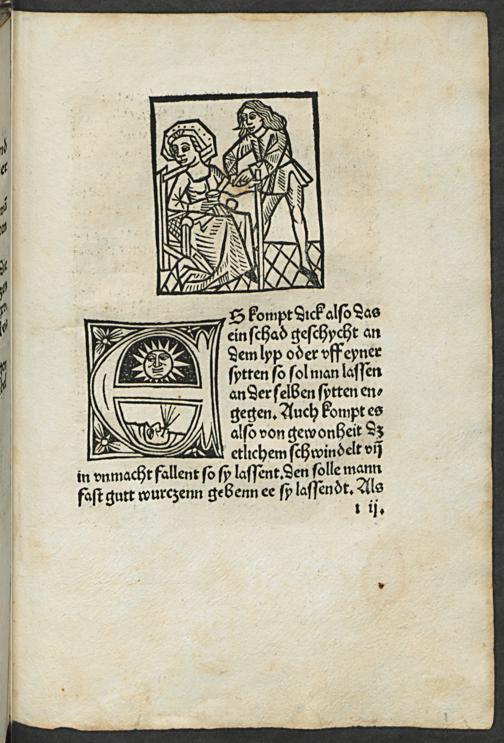 ES kompt dick also das
ein schad geschycht an
dem lyp oder vff eyner
sytten so sol man lassen
an der selben sytten en⸗
gegen. Auch kompt es
also von gewonheit dz
etlichem schwindelt vñ
in vnmacht fallent so sy lassent. den solle mann
fast gutt wurczenn gebenn ee sy lassendt. Als
ı ij.